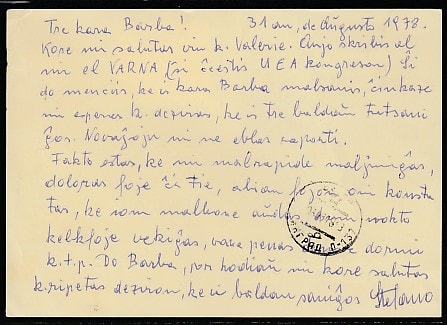 Tre kara Barba! 31an, de aŭgusto 1978.
Kore mi salutas vin k. Valerie. Anjo skribis al
mi el VARNA (ŝi ĉeestis UEA kongreson) Ŝi
do menciis, ke vi kara Barba malsanis, ĉiukaze
mi esperas k. deziras, ke vi tre baldaŭ tutsani
ĝos. Novaĵojn mi ne eblas raporti.
Fakto estas, ke mi malrapide maljuniĝas,
doloras foje ĉi tie, alian fojon oni konsta
tas, ke iom malbone aŭdas, dum nokto
kelkfoje vekiĝas, vane penas dormi
k.t.p. Do Barba, por hodiaŭ mi kore salutas
k. ripetas deziron, ke vi baldaŭ saniĝos Stefano